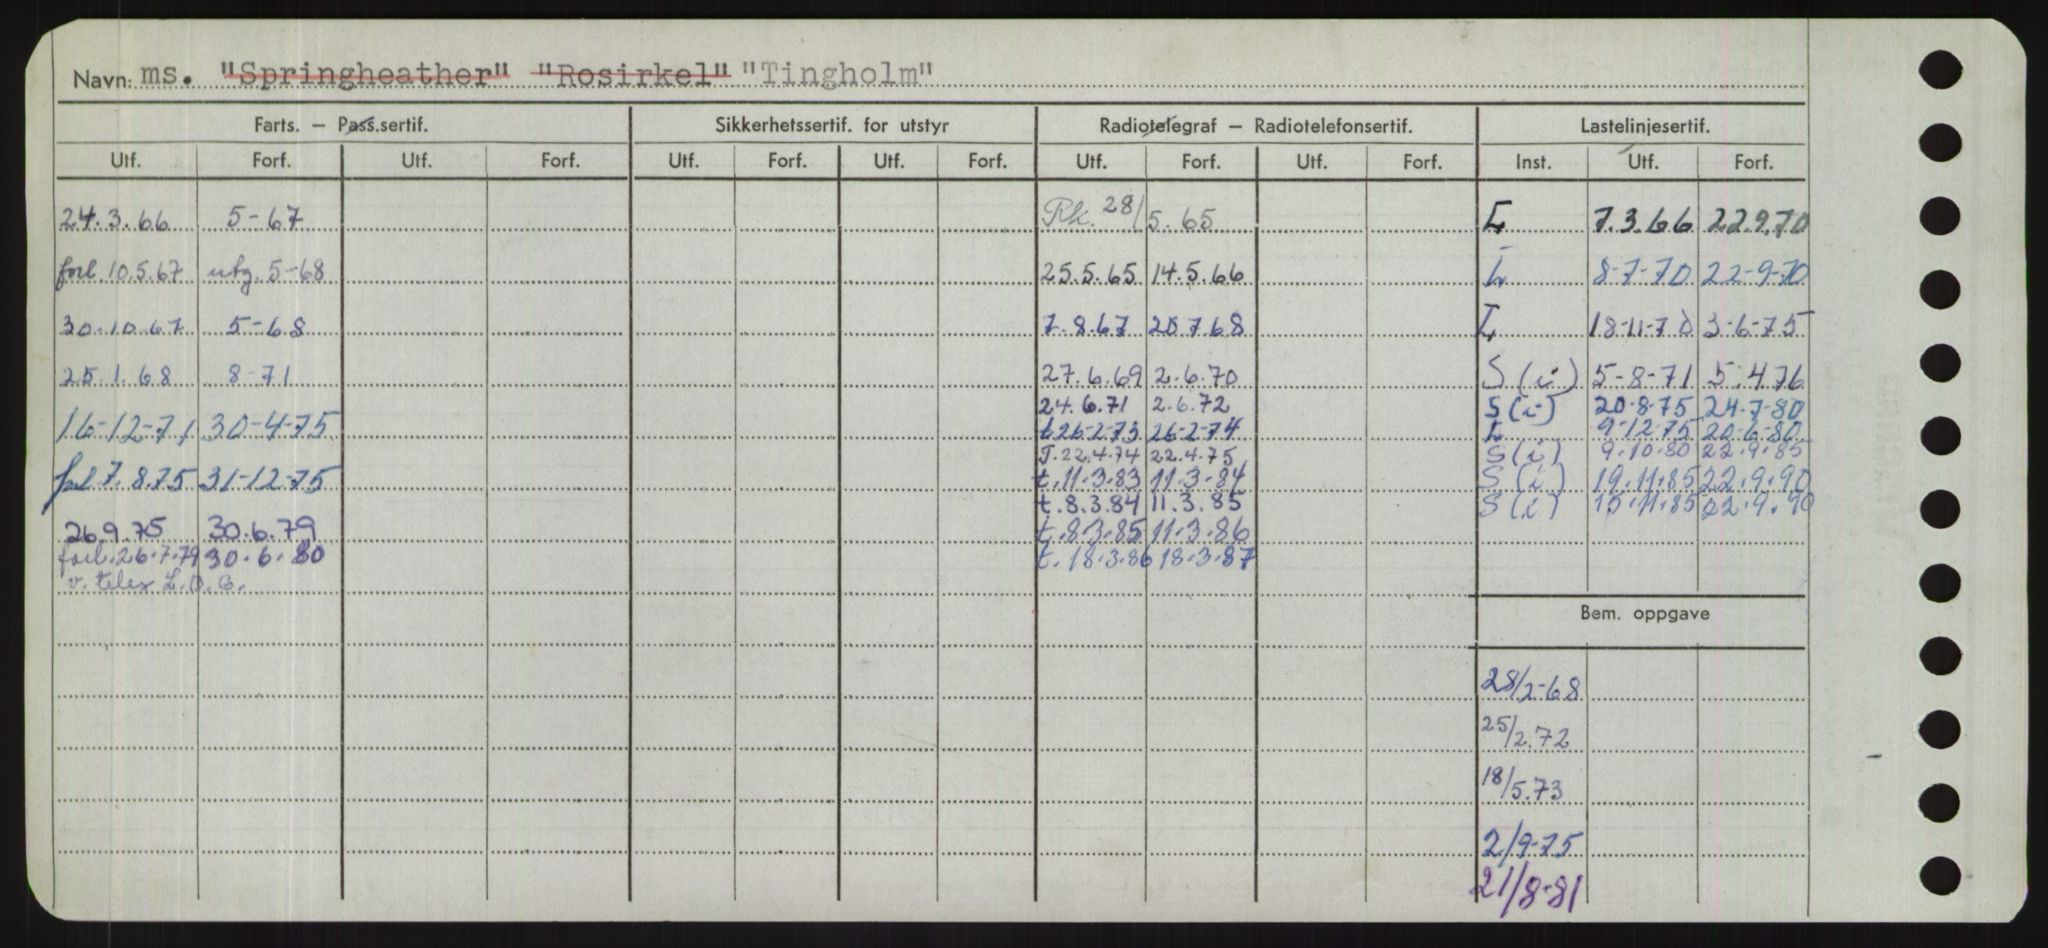 Navn: ms. "Springheather" "Rosirkel" "Tingholm"
Farts. – Pass.sertif. Sikkerhetssertif. for utstyr Radiotelegraf – Radiotelefonsertif. Lastelinjesertif.
Utf. Forf. Utf. Forf. Utf. Forf. Utf. Forf. Utf. Forf. Utf. Forf. Inst. Utf. Forf.
24.3.66 5-67 Rk. 28/5.65 L 7.3.66 22.9.70
forl. 10.5.67 utg. 5-68 25.5.65 14.5.66 L 8-7-70 22-9-70
30.10.67 5-68 7.8.67 20.7.68 L 18-11-70 3-6-75
25.1.68 8-71 27.6.69 2.6.70 S (i) 5-8-71 5.4.76
24.6.71 2.6.72 S (i) 20.8.75 24.7.80
16-12-71 30-4-75 t 26-2-73 26-2-74 L 9-12-75 20-6-80
T. 22.4.74 22.4.75 S (i) 9.10.80 22.9.85
7.8.75 31-12-75 t. 11.3.83 11.3.84 S (i) 19.11.85 22.9.90
t. 8.3.84 11.3.85 S (i) 15.11.85 22.9.90
26.9.75 30.6.79 t. 8.3.85 11.3.86
forl. 26.7.79 30.6.80 t. 18.3.86 18.3.87
v. telex
Bem. oppgave
28/2-68
25/2.72
18/5.73
2/9-75
21/8-81